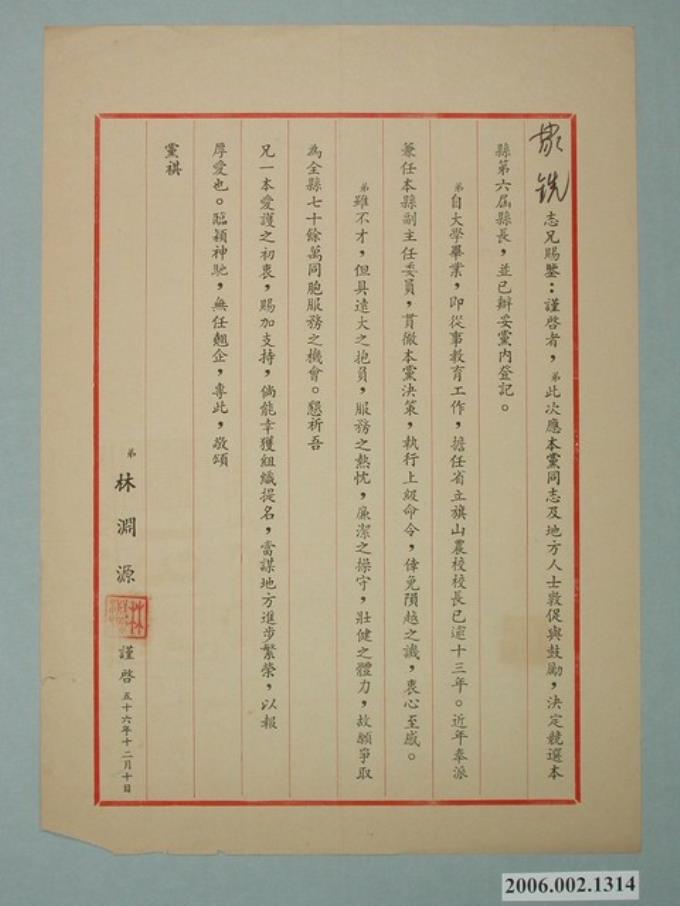 志兄賜鑒：謹啓者，弟此次應本黨同志及地方人士敦促與鼓勵，決定競選本
縣第六屆縣長，並已辦妥黨內登記。
弟自大學畢業，即從事教育工作，擔任省立旗山農校校長已逾十三年。近年奉派
兼任本縣副主任委員，貫徹本黨決策，執行上級命令，倖免隕越之譏，衷心至感。
弟雖不才，但具遠大之抱負，服務之熱忱，廉潔之操守，壯健之體力，故願爭取
為全縣七十餘萬同胞服務之機會。懇祈吾
兄一本愛護之初衷，賜加支持，倘能幸獲組織提名，當謀地方進步繁榮，以報
厚愛也。臨穎神馳，無任翹企，專此，敬頌
黨祺
弟 林淵源 謹啓 五十六年十二月十日
2006.002.1314